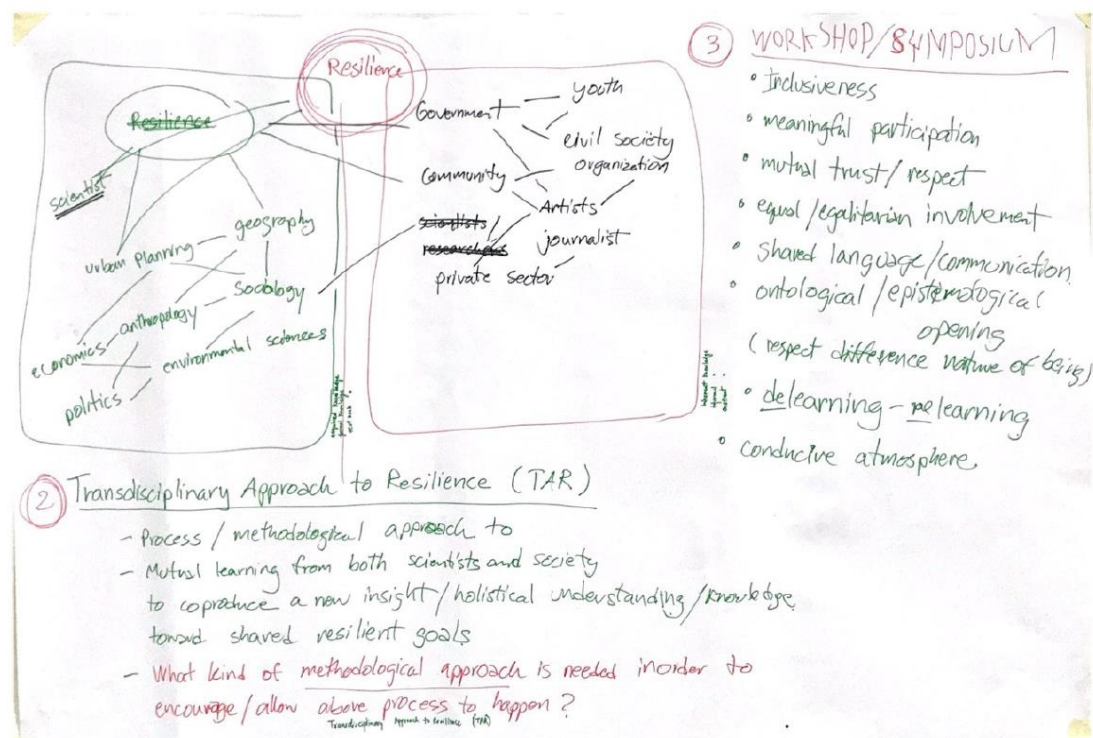 Resilience
Resilience
scientist
geography
urban planning
Sociology
anthropology
economics
environmental sciences
politics
Government
youth
civil society
organization
Community
Artists
scientists
researchers
journalist
private sector
3 WORKSHOP/SYMPOSIUM
• Inclusiveness
• meaningful participation
• mutual trust/respect
• equal/egalitarian involvement
• shared language/communication
• ontological/epistemological
opening
(respect difference nature of being)
• delearning - relearning
• conducive atmosphere
2 Transdisciplinary Approach to Resilience (TAR)
- Process / methodological approach to
- Mutual learning from both scientists and society
to coproduce a new insight/holistical understanding/knowledge
toward shared resilient goals
- What kind of methodological approach is needed inorder to
encourage/allow above process to happen?
Transdisciplinary Approach to Resilience (TAR)